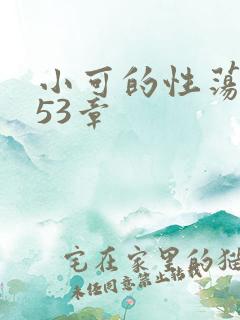 小可的性荡
53章
宅在家里的猫
未经同意禁止转载